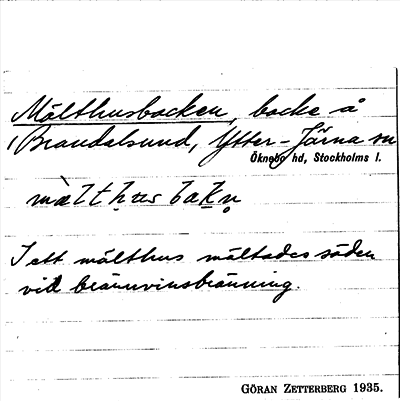 Mälthusbacken, backe å
Brandalsund, Ytter-Järna sn
Öknebo hd, Stockholms l.
I ett mälthus mältades säden
vid brännvinsbränning.
GÖRAN ZETTERBERG 1935.